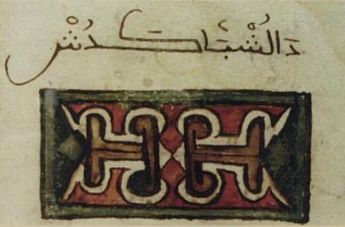 دَالُشْ بَّاكَدُشْ